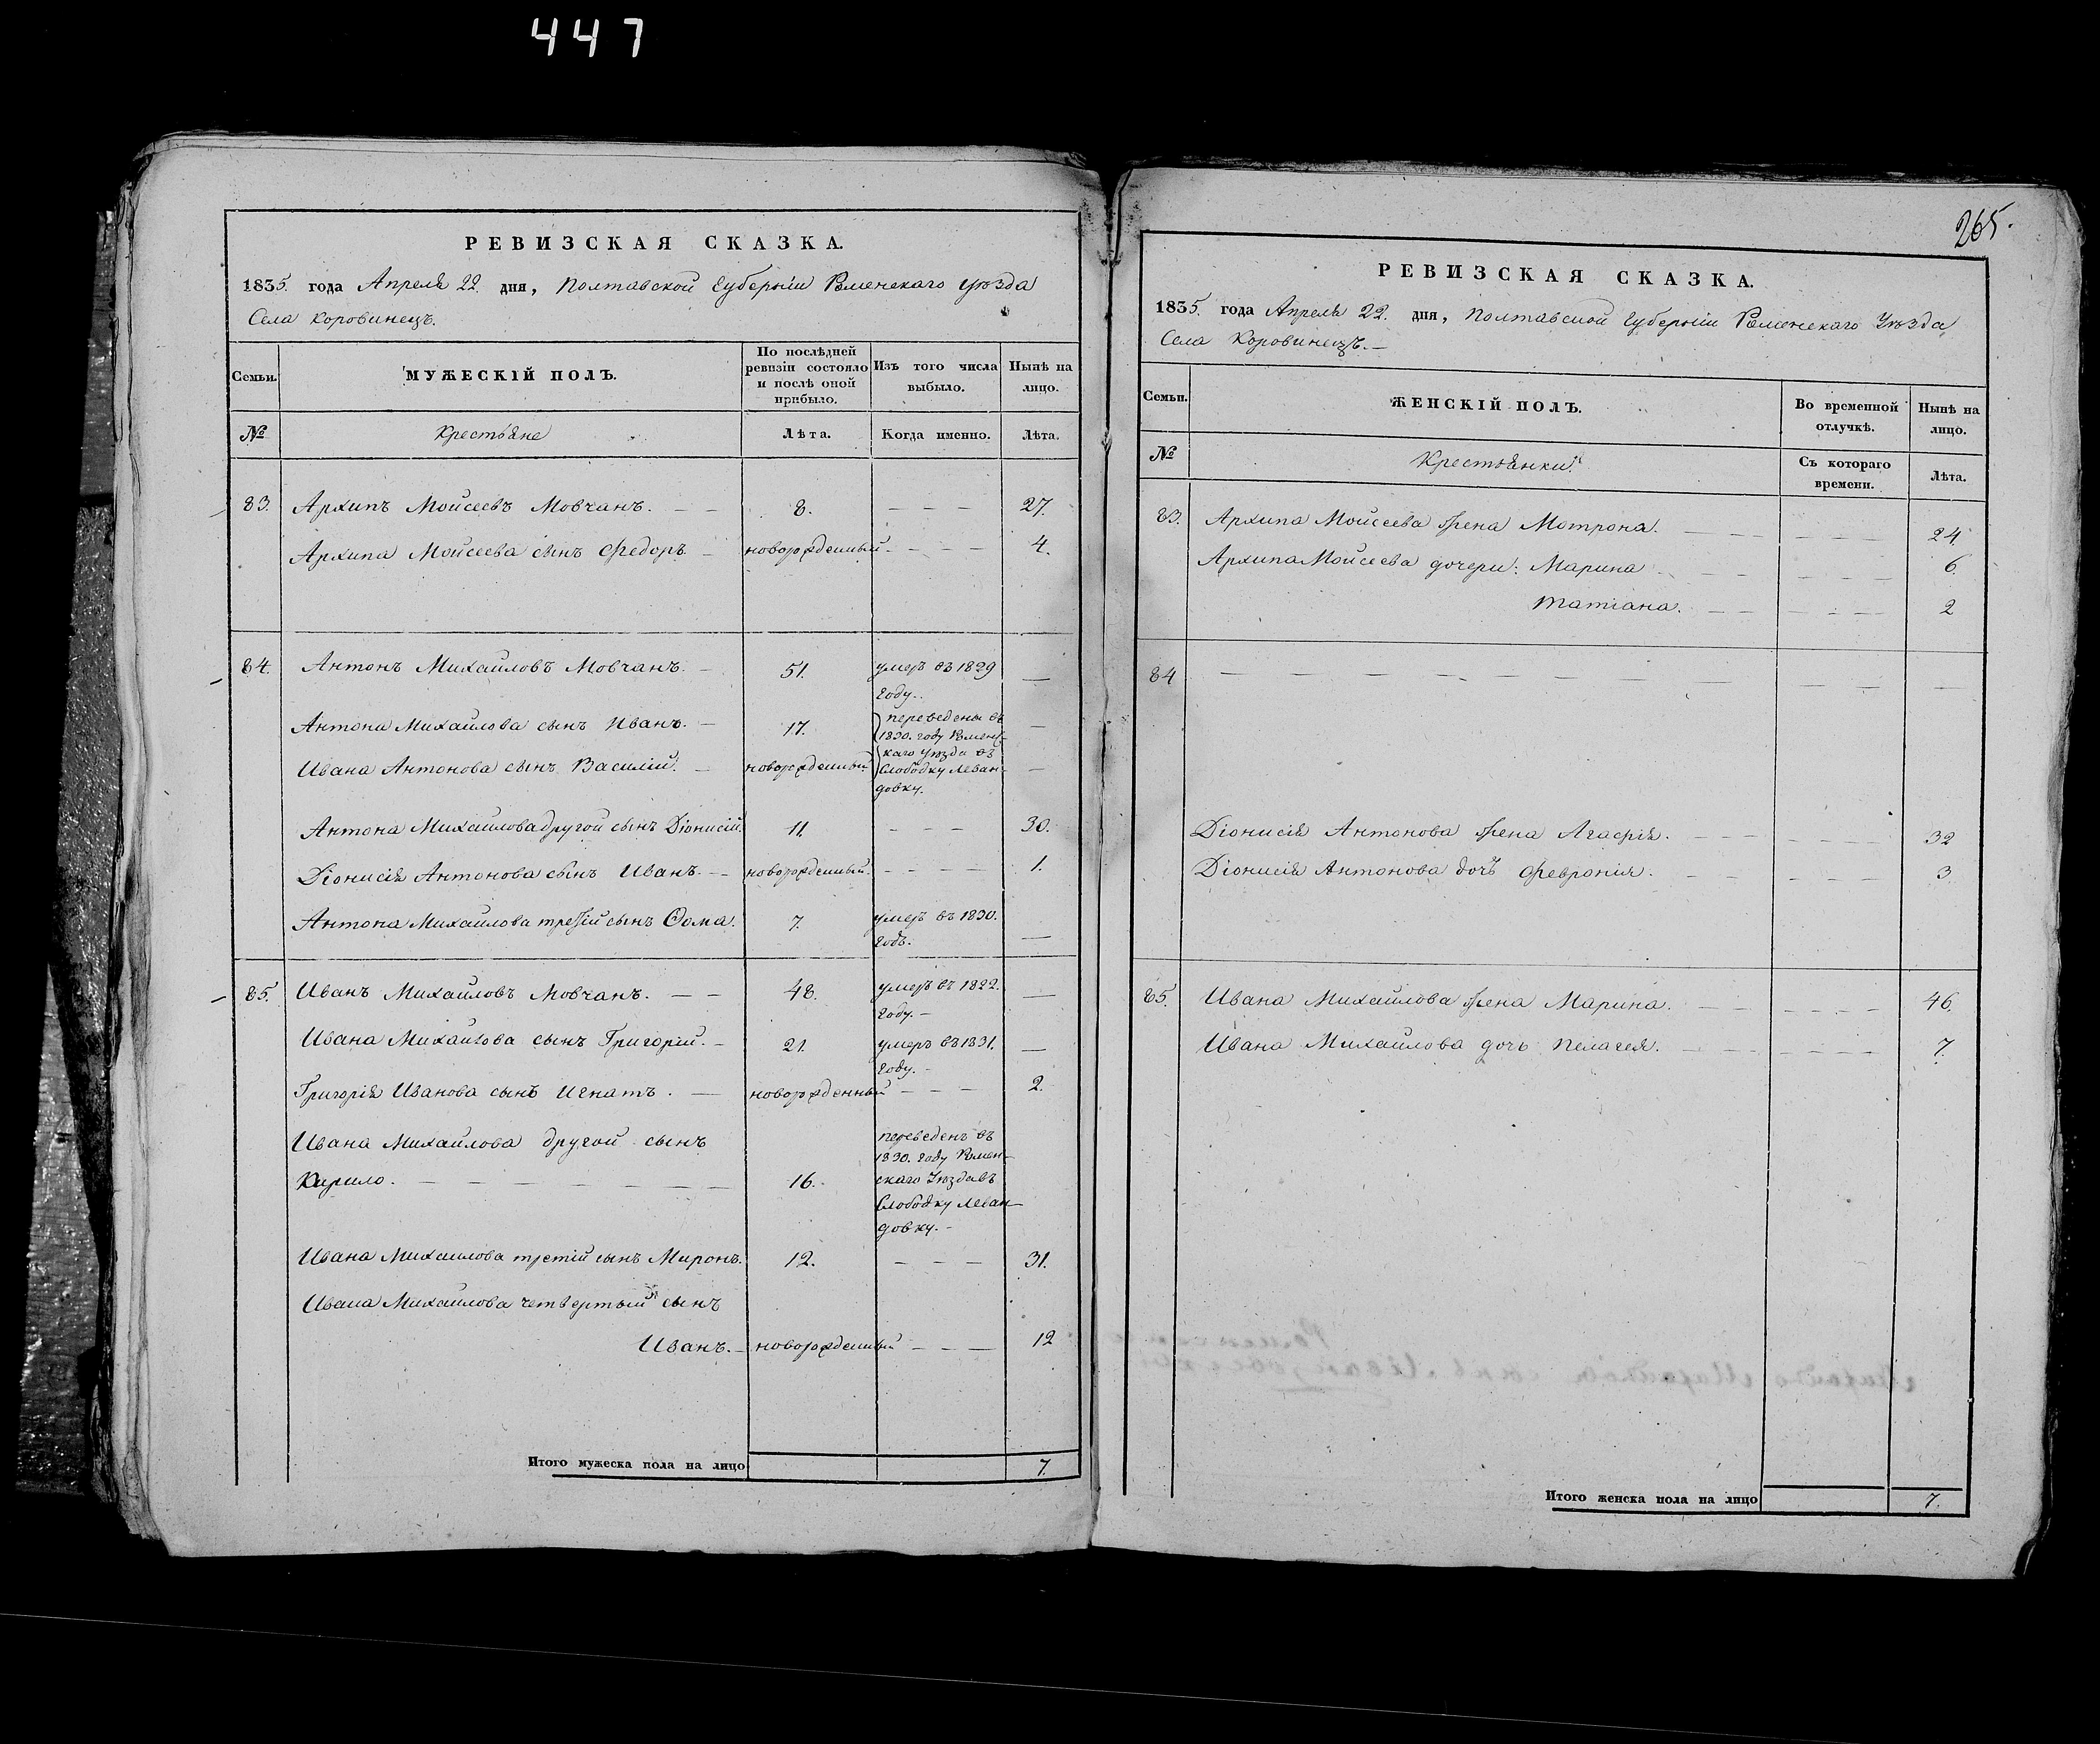 447
РЕВИЗСКАЯ СКАЗКА.
1835. года Апреля 22. дня, Полтавской Губерніи Роменскаго уѣзда
Села Коровинецъ.
Семьи.
МУЖЕСКІЙ ПОЛЪ.
По послѣдней
ревизіи состояло
и послѣ оной
прибыло.
Изъ того числа
выбыло.
Нынѣ на
лицо.
№
Крестьяне
Лѣта.
Когда именно.
Лѣта.
83. Архипъ Моисеевъ Мовчанъ. — — 8. — — — 27.
Архипа Моисеева сынъ Федоръ. — новорожденный. — — — 4.
84. Антонъ Михайловъ Мовчанъ. — 51. умеръ въ 1829 —
году.
Антона Михайлова сынъ Иванъ. — 17. переведены въ —
1830. году Ромен-
скаго уѣзда въ
Ивана Антонова сынъ Василій. — новорожденный Слободку Леван- —
довку.
Антона Михайлова другой сынъ Діонисій. 11. — — — 30.
Діонисія Антонова сынъ Иванъ. — — новорожденный. — — — — 1.
Антона Михайлова третій сынъ Ѳома. 7. умеръ въ 1830. —
годѣ.
85. Иванъ Михайловъ Мовчанъ. — — 48. умеръ въ 1822. —
году. —
Ивана Михайлова сынъ Григорій. — 21. умеръ въ 1831. —
году. —
Григорія Иванова сынъ Игнатъ. — новорожденный — — — 2.
Ивана Михайлова другой сынъ переведенъ въ
1830. году Ромен-
Кирило. — — — — — — — 16. скаго Уѣзда въ
Слободку Леван-
довку. —
Ивана Михайлова третій сынъ Миронъ. 12. — — — 31.
Ивана Михайлова четвертый сынъ
Иванъ. — новорожденный — — — 12
Итого мужеска пола на лицо 7.
265.
РЕВИЗСКАЯ СКАЗКА.
1835. года Апреля 22. дня, Полтавской Губерніи Роменскаго Уѣзда
Села Коровинецъ. —
Семьи.
ЖЕНСКІЙ ПОЛЪ.
Во временной
отлучкѣ.
Нынѣ на
лицо.
№
Крестьянки.
Съ котораго
времени.
Лѣта.
83. Архипа Моисеева жена Мотрона. — — — — — — 24
Архипа Моисеева дочери: Марина — — — — — — 6.
Татіана. — — — — — 2
84 — — — — — — — — — — — — —
Діонисія Антонова жена Агафія. — — — — — — — 32
Діонисія Антонова дочь Февронія. — — — — — 3.
85. Ивана Михайлова жена Марина. — — — — — — 46.
Ивана Михайлова дочь Пелагея. — — — — — — 7.
Итого женска пола на лицо 7.